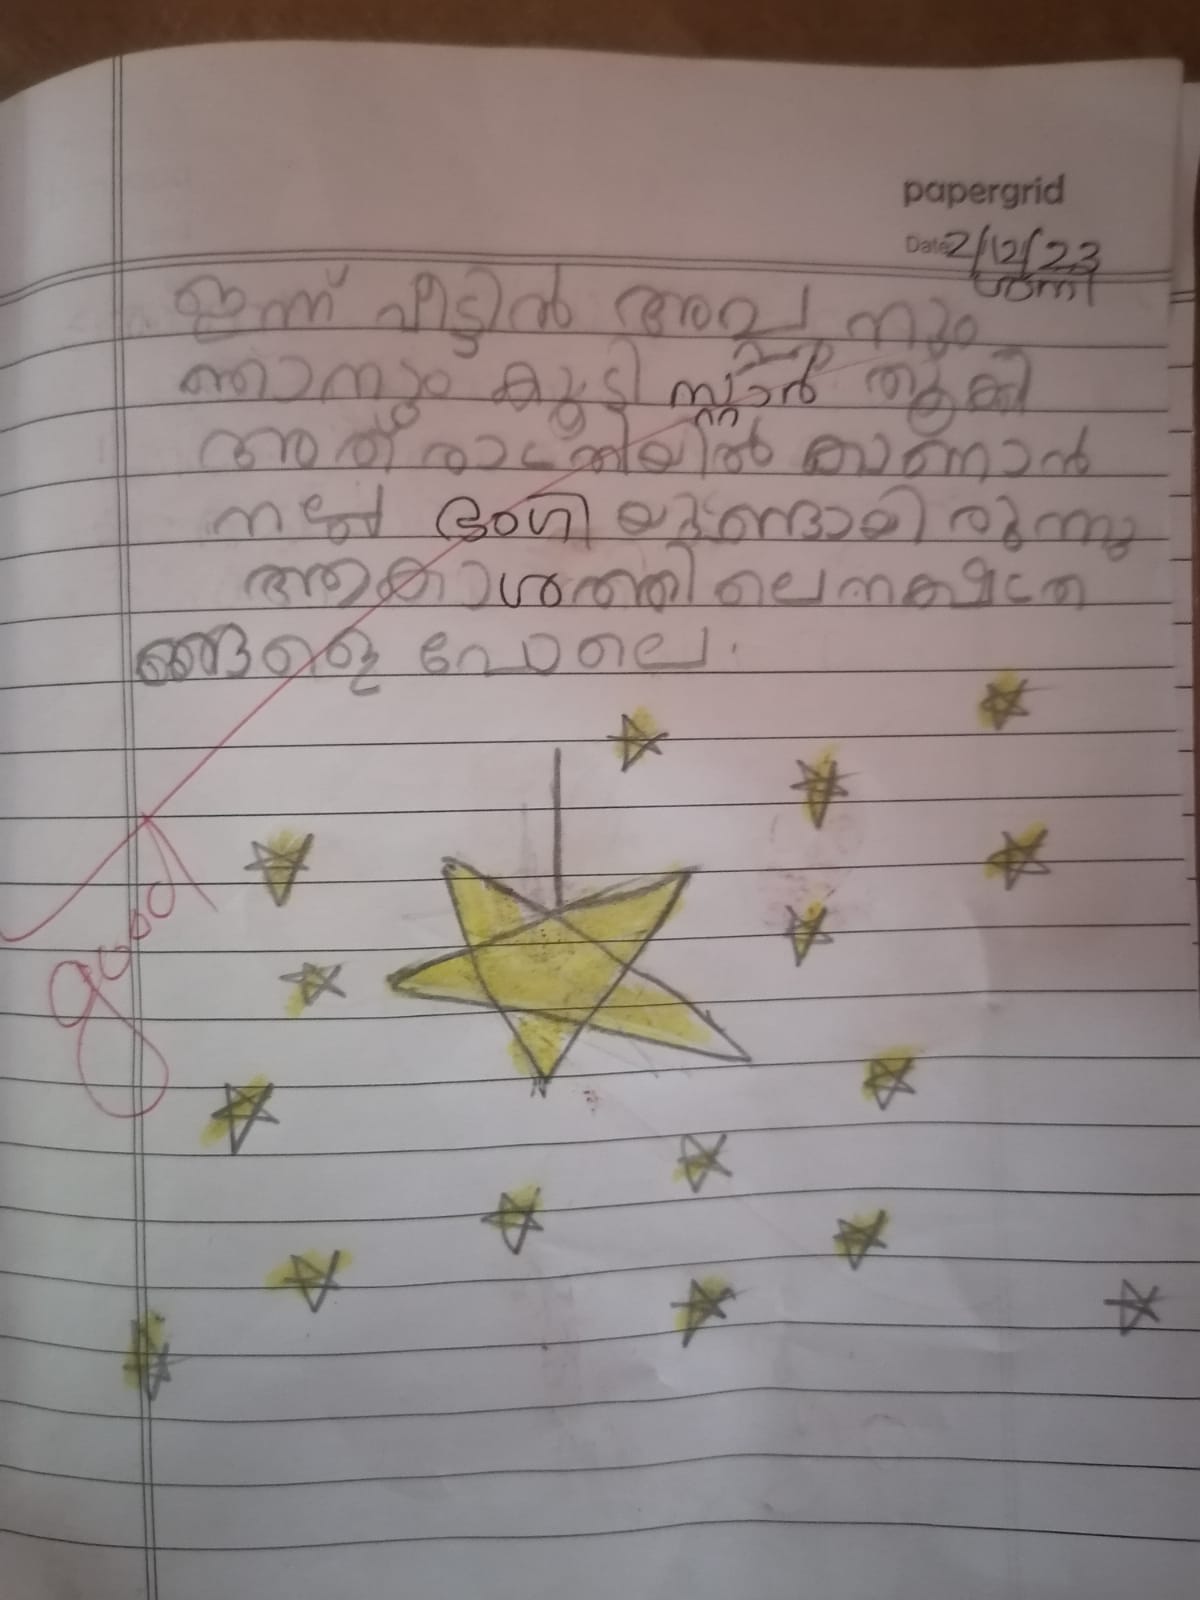 papergrid
Date 2/12/23
ശനി
ഇന്ന് വീട്ടിൽ അപ്പു നും
ഞാനും കൂട്ടി സ്റ്റാർ തൂക്കി
അത് രാത്രിയിൽ കാണാൻ
നല്ല ഭംഗി യുണ്ടായി രുന്നു
ആകാശത്തി ലെ നക്ഷത്ര
ങ്ങളെ പോലെ.
good